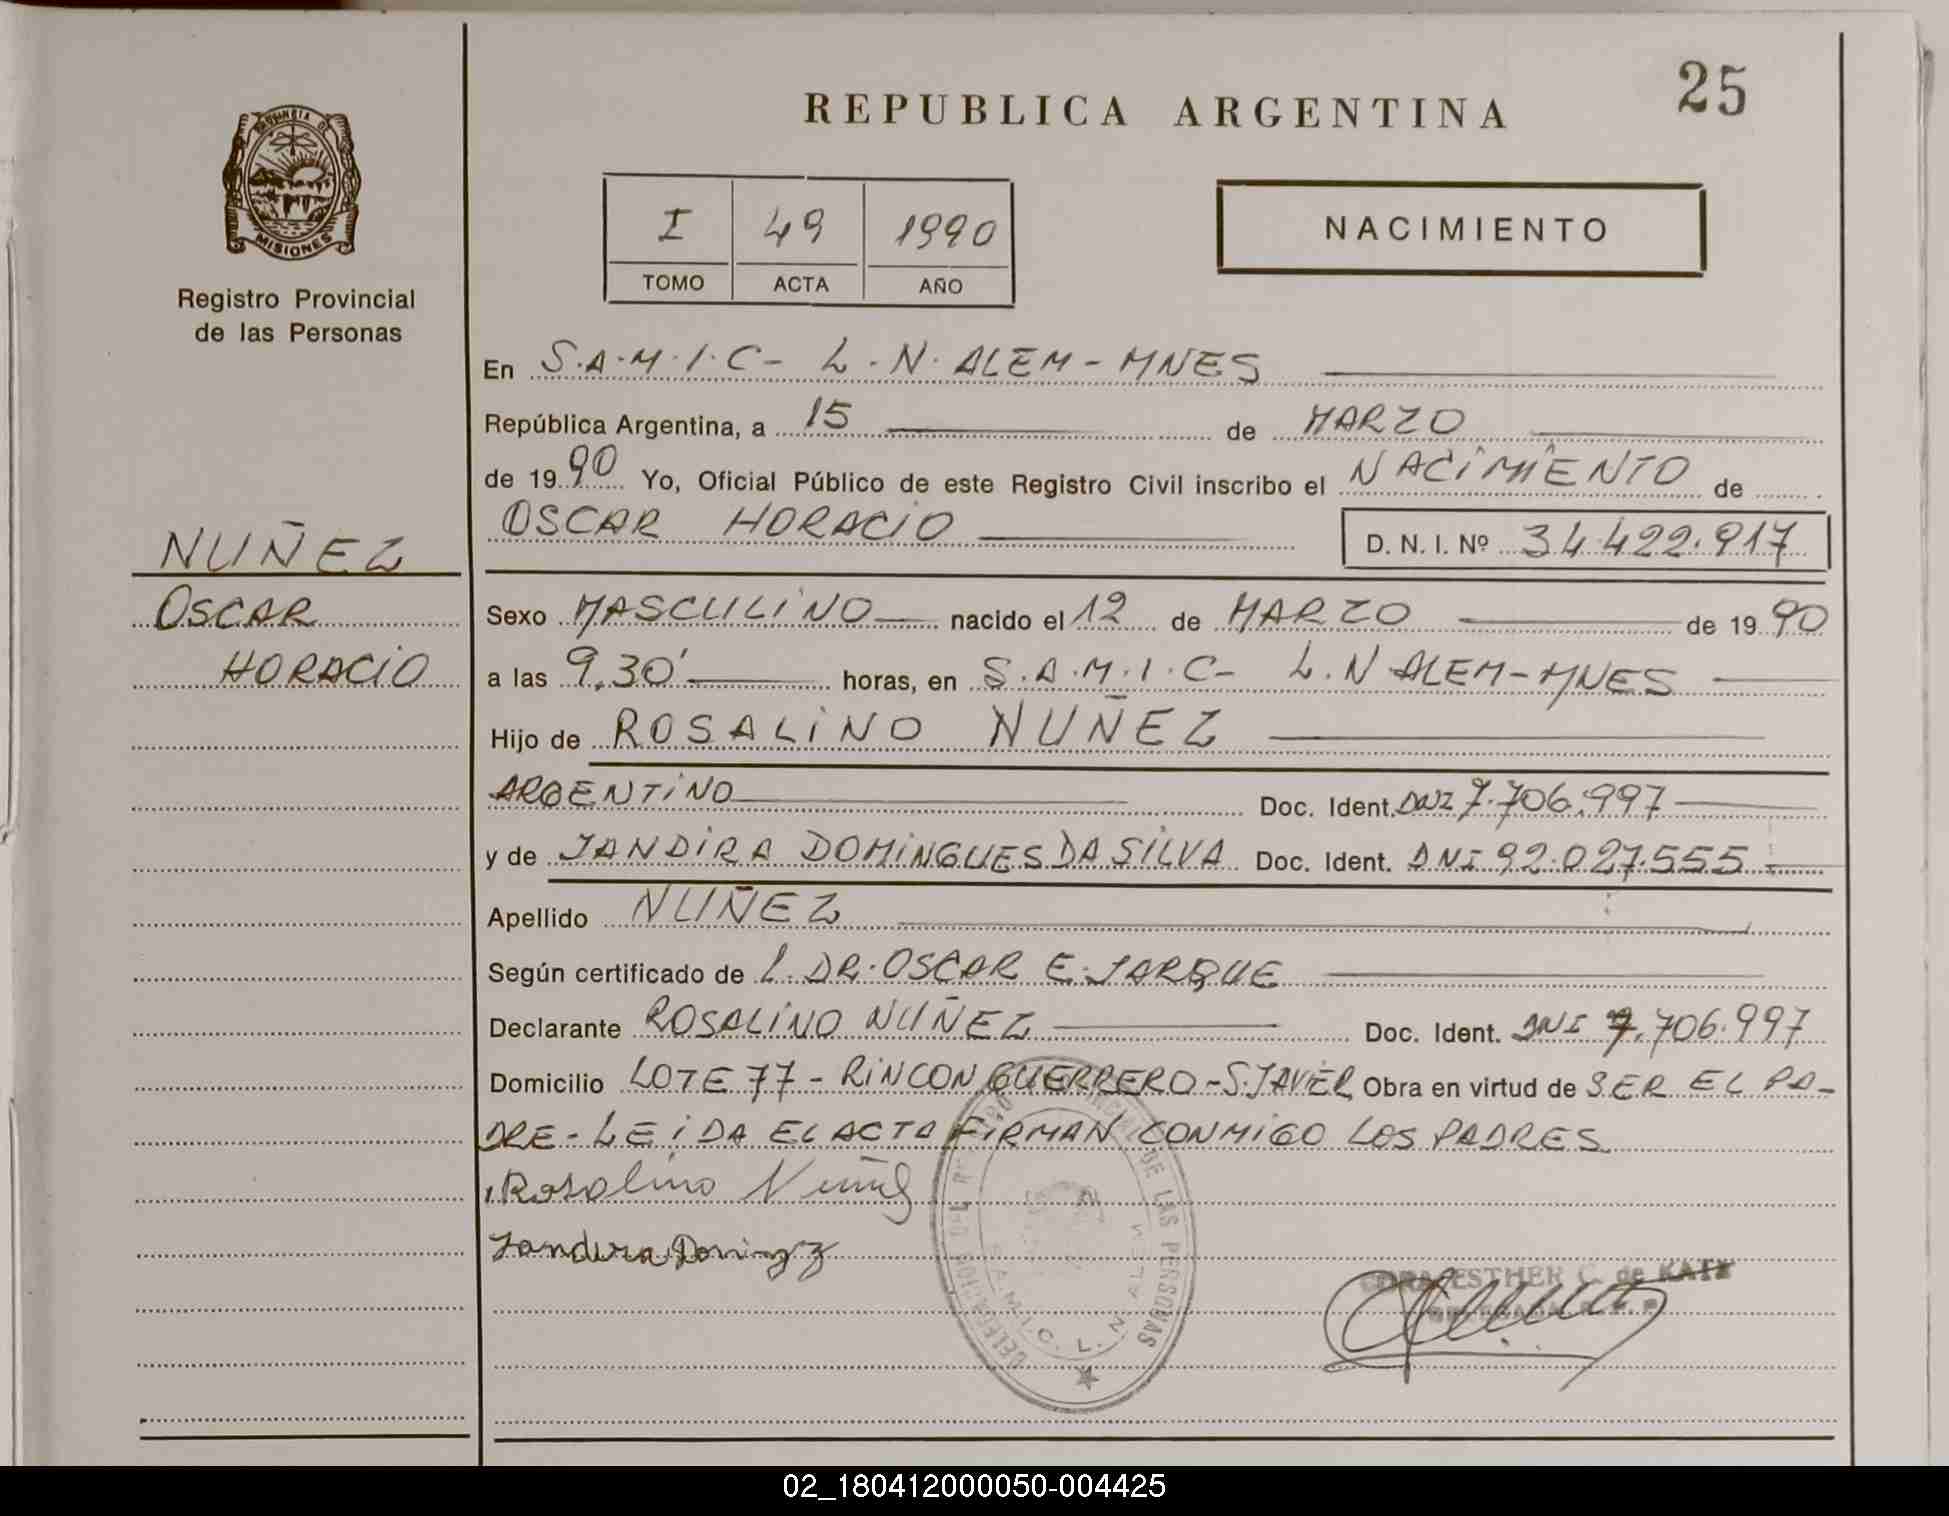 25
REPUBLICA ARGENTINA
PROVINCIA DE
MISIONES
Registro Provincial
de las Personas
I 49 1990
TOMO ACTA AÑO
NACIMIENTO
En S.A.M.I.C- L.N. ALEM-MNES
República Argentina, a 15 de MARZO
de 1990 Yo, Oficial Público de este Registro Civil inscribo el NACIMIENTO de
OSCAR HORACIO D. N. I. Nº 34.422.917
NUÑEZ
OSCAR
HORACIO
Sexo MASCULINO nacido el 12 de MARZO de 1990
a las 9,30' horas, en S.A.M.I.C- L.N ALEM-MNES
Hijo de ROSALINO NUÑEZ
ARGENTINO Doc. Ident. DNI 7.706.997
y de JANDIRA DOMINGUES DA SILVA Doc. Ident. DNI 92.027.555
Apellido NUÑEZ
Según certificado de L. DR. OSCAR E. JARQUE
Declarante ROSALINO NUÑEZ Doc. Ident. DNI 7.706.997
Domicilio LOTE 77 - RINCON GUERRERO - S. JAVIER Obra en virtud de SER EL PA-
DRE - LEIDA EL ACTA FIRMAN CONMIGO LOS PADRES
Rosalino Nuñez
Jandira
DELEGACION DEL REGISTRO PROVINCIAL DE LAS PERSONAS
S.A.M.I.C. L. N. ALEM
ESTHER C. de KATZ
02_180412000050-004425